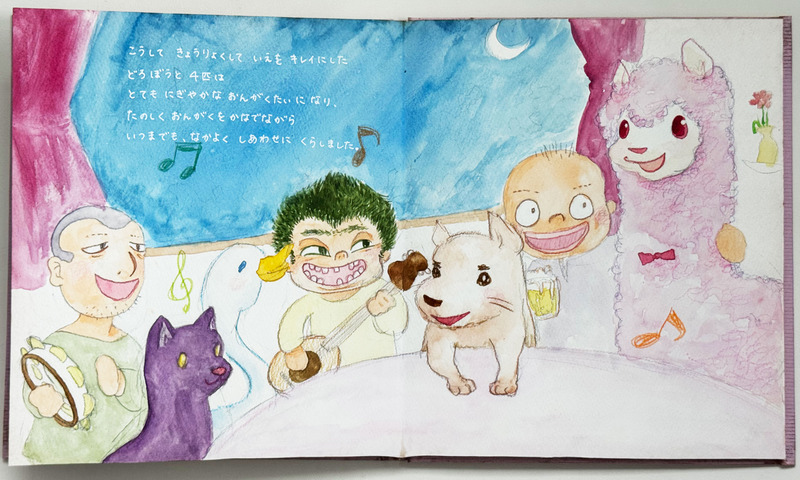 こうして きょうりょくして いえを キレイにした
どろぼうと 4匹は
とても にぎやかな おんがくたいに なり、
たのしく おんがくを かなでながら
いつまでも、なかよく しあわせに くらしました。